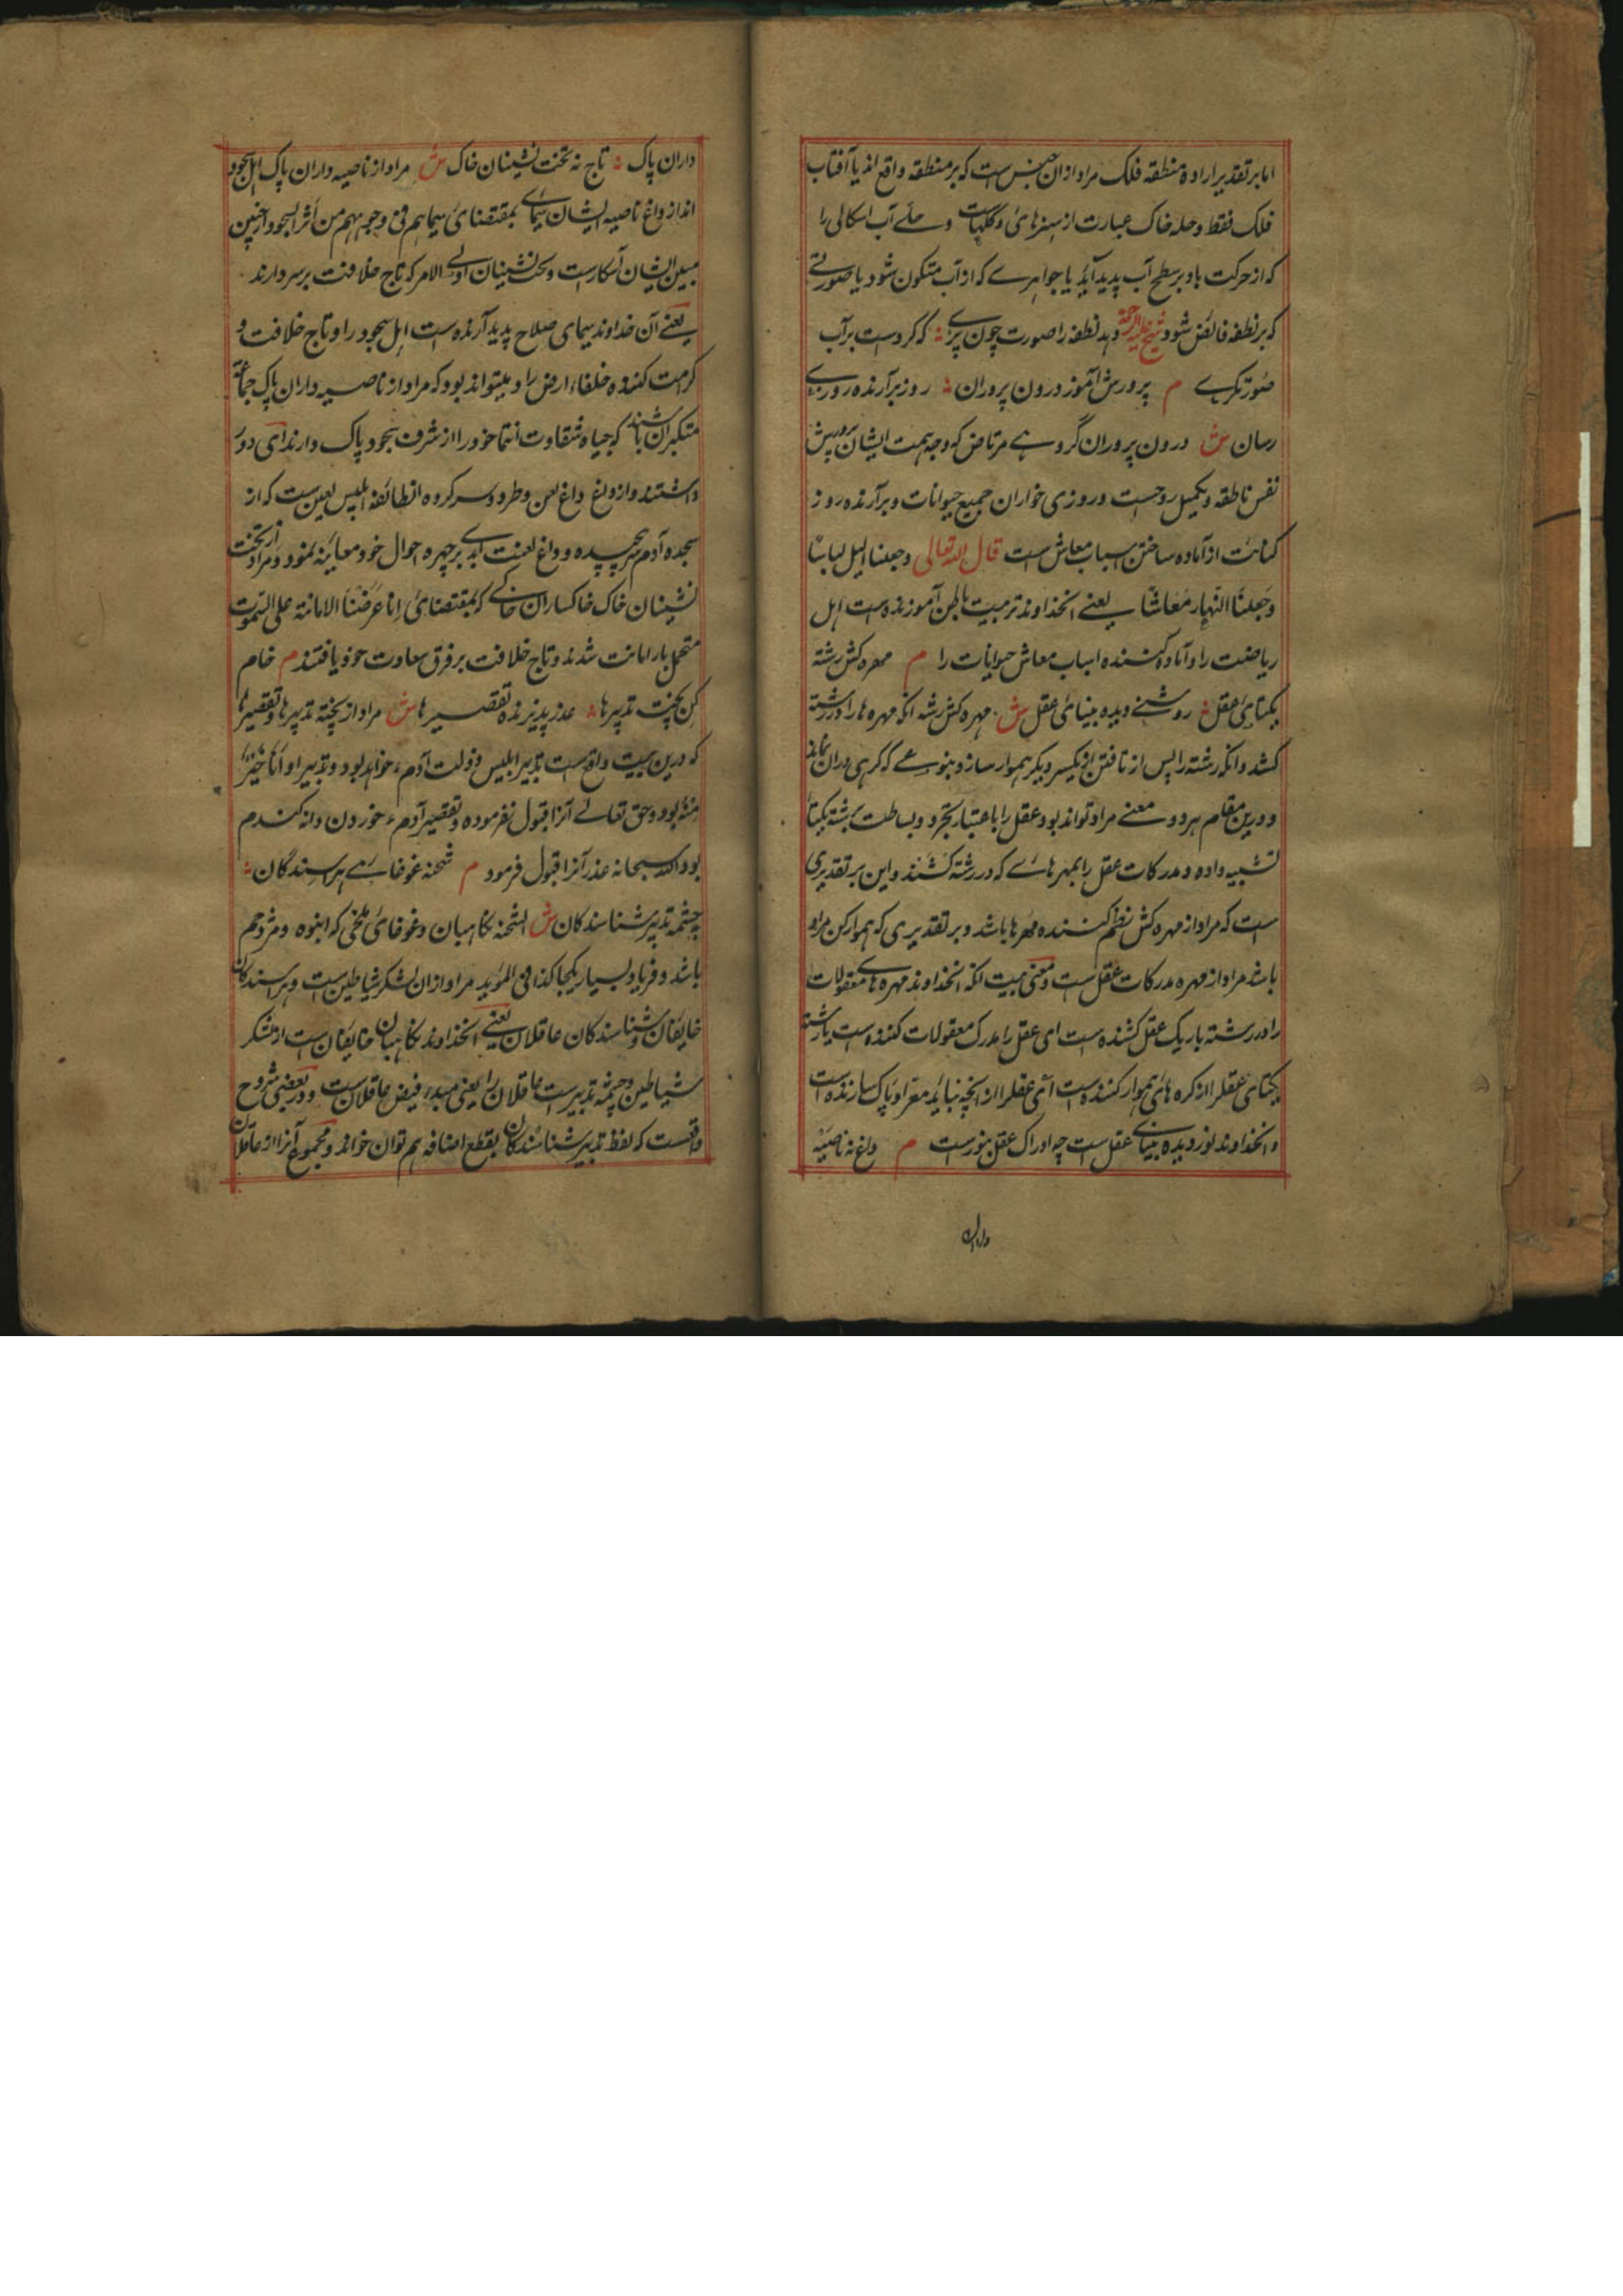 اما بر تقدیر اراده منطقه فلک مراد ازان جنس است که بر منطقه واقع اند یا آفتاب
فلک فقط و حله خاک عبارت از سبزهای و گلهاست و حلے آب اشکالی را
که از حرکت باد بر سطح آب پدید آید یا جواهرے که از آب متکون شود یا صورتے
که بر نطفه فائض شود شیخ علیه الرحمة دهد نطفه را صورت چون پرے که کردست بر آب
صورتگرے م پرورش آموز درون پروران روز برآرنده روزے
رسان ش درون پروران گروهے مرتاض که وجه همت ایشان پرورش
نفس ناطقه و تکمیل روحست و روزی خواران جمیع حیوانات و برآرنده روز
کنایت از آماده ساختن اسباب معاش است قال الله تعالی وجعلنا الیل لباسًا
وجعلنا النهار معاشا یعنے آنخداوند تربیت باطن آموزنده است اهل
ریاضت را و آماده کننده اسباب معاش حیوانات را م مهره کش رشته
یکتای عقل روشنے دیده بینای عقل ش مهره کش رشته آنکه مهره ها را در رشته
کشد و آنکه رشته را پس از تافتن از یکسر دیگر هموار سازد بنوعے که گرهی دران نماند
و درین مقام هر دو معنے مراد تواند بود عقل را باعتبار تجرد و بساطت برشته یکتا
تشبیه داده و مدرکات عقل را بمهرهاے که در رشته کشند و این بر تقدیری
ست که مراد از مهره کش نظم کننده مهرها باشد و بر تقدیری که هموار کن مراد
باشد مراد از مهره مدرکات عقل ست و معنی بیت آنکه آنخداوند مهره هاے معقولات
را در رشته باریک عقل کشنده است ای عقل را مدرک معقولات کننده است یا رشته
یکتای عقل را از کره های هموار کننده است ای عقل را از آنچه نباید معرا و پاک سازنده است
و آنخداوند نور دیده بیناے عقل ست چه ادراک عقل بنورست م داغ نه ناصیه
داران
داران پاک تاج نه تخت نشینان خاک ش مراد از ناصیه داران پاک اهل سجود
اند از داغ ناصیه ایشان سیماے بمقتضای سیماهم فی وجوههم من أثر السجود از جبین
مبین ایشان آشکارست و تخت نشینان اولے الامر که تاج خلافت بر سر دارند
یعنے آن خداوند سیمای صلاح پدید آرنده ست اهل سجود را و تاج خلافت و
کرمت کننده خلفاء ارض را و میتواند بود که مراد از ناصیه داران پاک جماعة
متکبران باشند که جباه شقاوت انتما خود را از شرف سجود پاک دارند ای دور
داشتند و از داغ داغ لعن و طرد و سر کروه انطائفه ابلیس لعین ست که از
سجده آدم سر پیچیده و داغ لعنت ابدے بر چهره احوال خود معاینه نمود و مراد از تخت
نشینان خاک خاکساران خاکے که بمقتضای انا عرضنا الامانة علی السموت
متحمل بار امانت شدند و تاج خلافت بر فرق سعادت خود یافتند م خام
کن پخت تدبیرها عذر پذیرنده تقصیرها ش مراد از پخته تدبیرها و تقصیرها
که درین بیت واقع ست تدبیر ابلیس و زلت آدم خواهد بود و تدبیر او انا خیر
منه بود و حق تعالے آنرا قبول نفرموده و تقصیر آدم خوردن دانه کندم
بود الله سبحانه عذر آنرا قبول فرمود م شحنه غوغاے هراسندگان
چشمه تدبیر شناسندگان ش الشحنه نگاهبان و غوغای ملخی که انبوه و مزدحم
باشد و فریاد بسیار یکجا کذا فی الموید مراد ازان لشکر شیاطین ست و هراسندکان
خایفان و شناسندکان عاقلان یعنے آنخداوند نگاهبان خایفان ست از لشکر
شیاطین و چشمه تدبیر ست عاقلان را یعنی مبدء فیض عاقلان ست و در بعضی شروح
واقعست که لفظ تدبیر شناسندکان بقطع اضافه هم توان خواند و مجموع آنرا از عاقلان